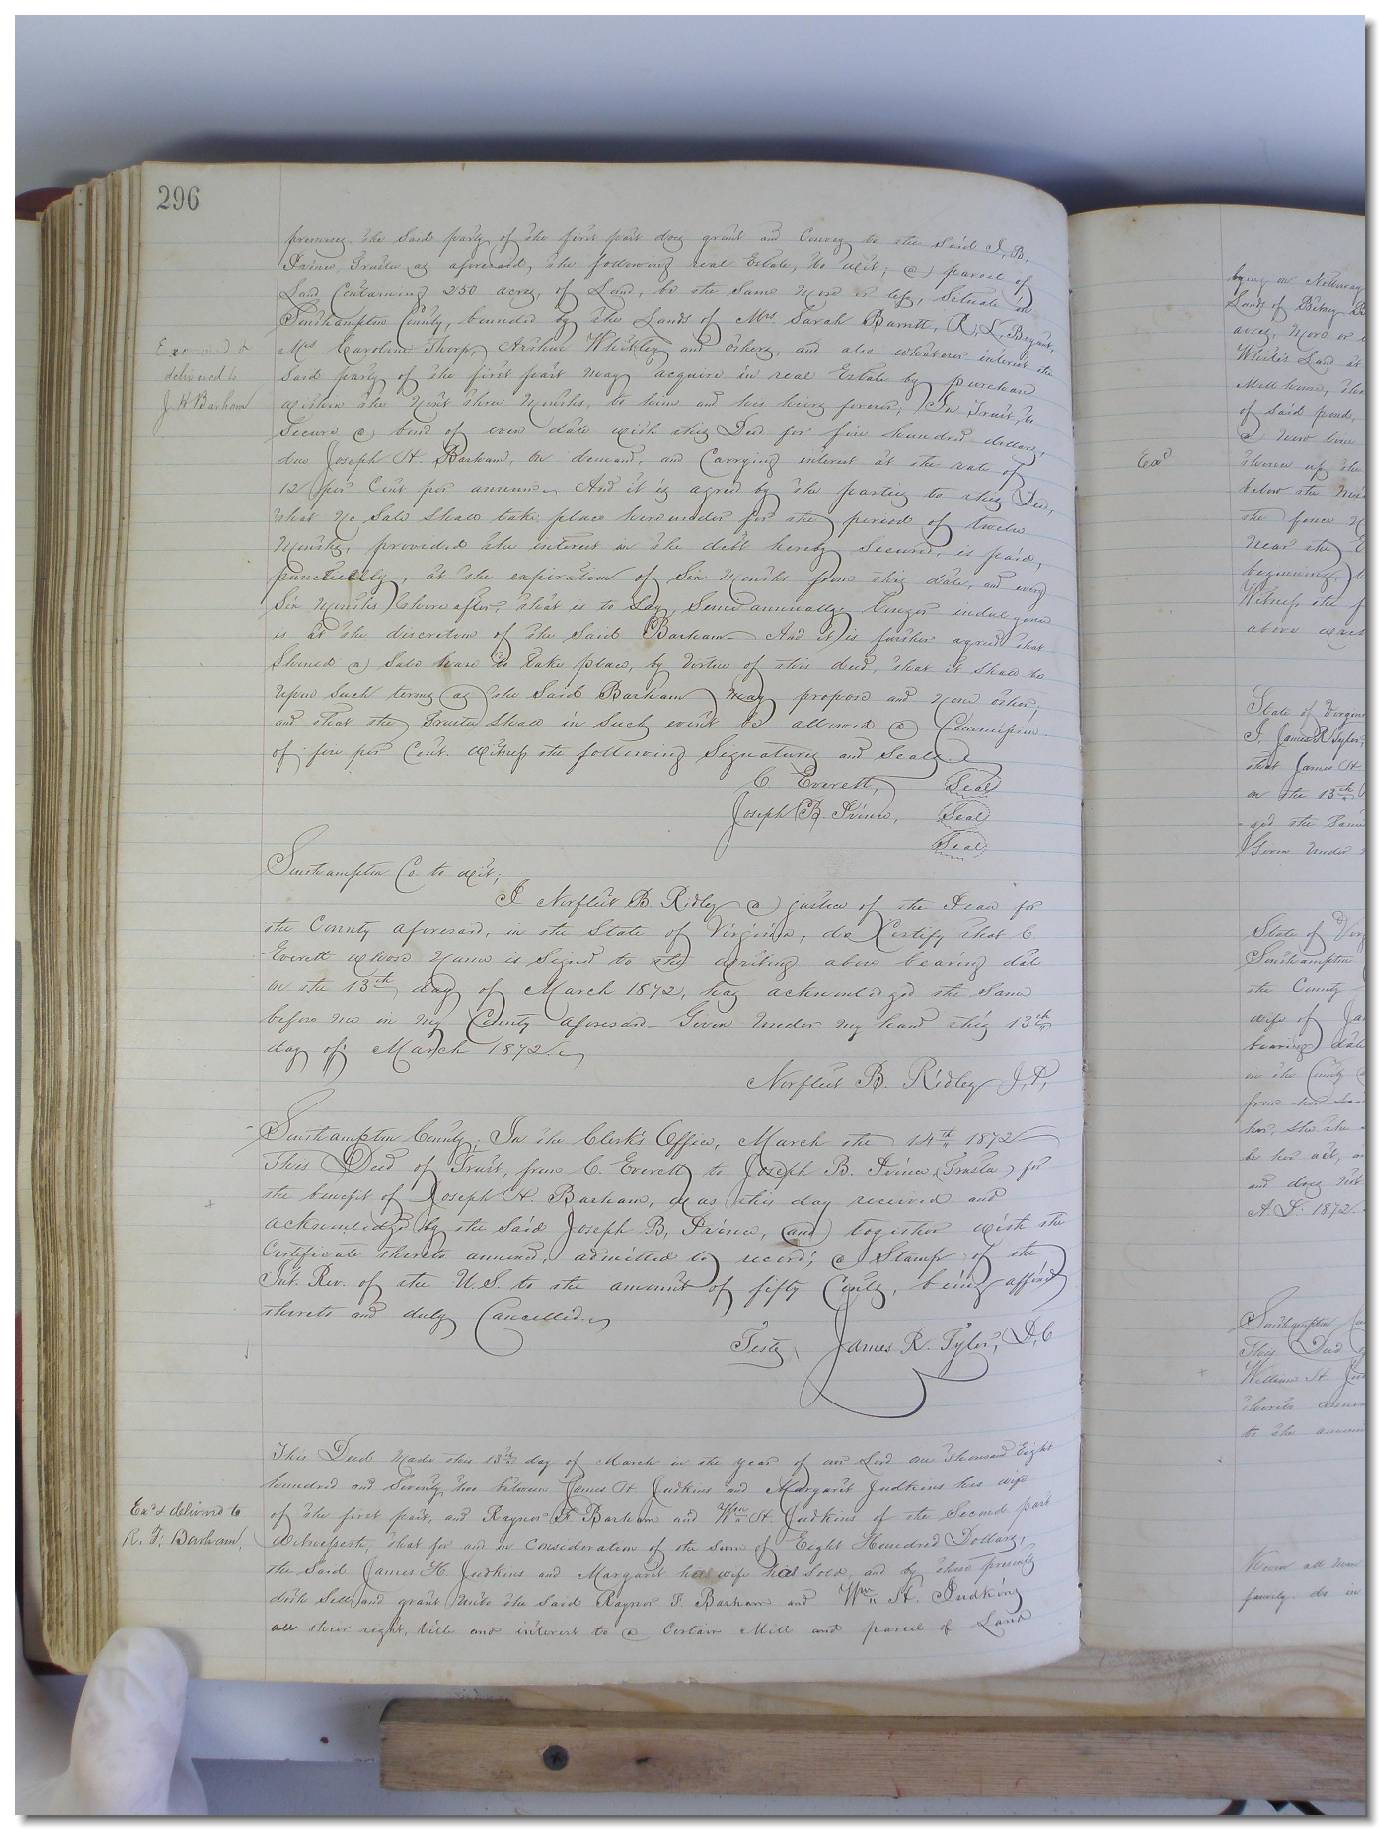 296
premises, the said party of the first part does grant and convey to the said J. B.
Prince, Trustee as aforesaid, the following real Estate, to wit; a parcel of
Land Containing 250 acres, of Land, be the same more or less, situate in
Southampton County, bounded by the Lands of Mrs Sarah Barrett, R. L. Bryant,
Mrs Caroline Thorp, Arthur Whitley and others, and also whatever interest the
said party of the first part may acquire in real Estate by purchase
within the next three months, to him and his heirs forever; In Trust, to
secure a bond of even date with this Deed for five hundred dollars,
due Joseph H. Barham, on demand, and Carrying interest at the rate of
12 per Cent per annum. And it is agreed by the parties to this Deed,
that no Sale shall take place hereunder for the period of twelve
Months, provided the interest in the debt hereby secured, is paid,
punctually, at the expiration of Six Months from this date, and every
Six Months thereafter, that is to say, Semi annually, longer indulgence
is at the discretion of the said Barham. And it is further agreed that
should a Sale have to take place, by virtue of this deed, that it shall be
upon such terms as the said Barham may propose and none other,
and that the Trustee shall in such event be allowed a Commission
of five per Cent. Witness the following Signatures and Seals
C. Everett, Seal
Joseph B. Prince, Seal
Seal
Examined &
delivered to
J. H. Barham
Southampton Co to wit;
I Norfleet B. Ridley a justice of the Peace for
the County aforesaid, in the State of Virginia, do Certify that C
Everett whose name is Signed to the writing above bearing date
on the 13th day of March 1872, has acknowledged the same
before me in my County aforesaid. Given under my hand this 13th
day of March 1872.
Norfleet B. Ridley J.P.
Southampton County; In the Clerk's Office, March the 14th 1872
This Deed of Trust, from C. Everett to Joseph B. Prince (Trustee) for
the benefit of Joseph H. Barham, was this day received and
acknowledged by the said Joseph B. Prince, (and) together with the
Certificate thereto annexed, admitted to record; a Stamp of the
Int. Rev. of the U.S. to the amount of fifty Cents, being affixed
thereto and duly Cancelled.
Teste James R. Tyler, D.C
This Deed made this 13th day of March in the year of our Lord one thousand Eight
hundred and Seventy two between James H. Judkins and Margaret Judkins his wife
of the first part, and Raynor F. Barham and Wm H. Judkins of the Second part
Witnesseth, that for and in consideration of the sum of Eight Hundred Dollars,
the said James H. Judkins and Margaret his wife has sold, and by these presents
doth sell and grant unto the said Raynor F. Barham and Wm H. Judkins
all their right, title and interest to a certain Mill and parcel of Land
Exd & delivered to
R. F. Barham,
lying on Nottoway
Lands of
acres, more or
White's Land at
Mill house,
of said pond,
a new line
Exd
thence up the
below the
the fence
near the
beginning,
Witness the
above
State of Virgin
I, James R Tyler,
that James H
on the 13th
-ged the same
Given under
State of Vir
Southampton
the County
wife of Ja
bearing date
in the County
from her
her, she the
be her act,
and does not
A.D. 1872.
Southampton
This Deed
William H. Jud
thereto annex
to the amoun
Know all men
family do in